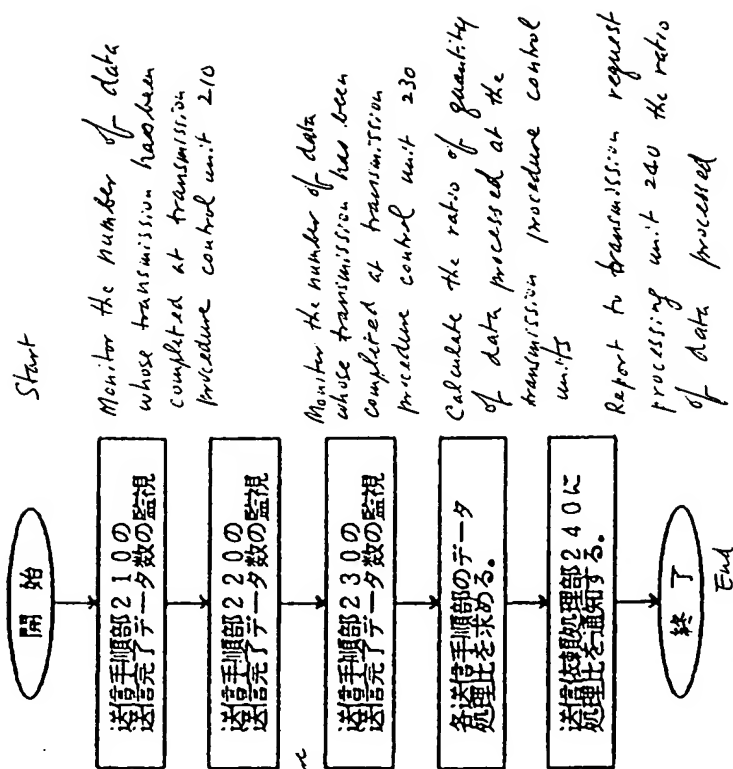 開 始
Start
送信手順部210の
送信完了データ数の監視
Monitor the number of data
whose transmission has been
completed at transmission
procedure control unit 210
送信手順部220の
送信完了データ数の監視
送信手順部230の
送信完了データ数の監視
Monitor the number of data
whose transmission has been
completed at transmission
procedure control unit 230
各送信手順部のデータ
処理比を求める。
Calculate the ratio of quantity
of data processed at the
transmission procedure control
units
送信依頼処理部240に
処理比を通知する。
Report to transmission request
processing unit 240 the ratio
of data processed
終 了
End